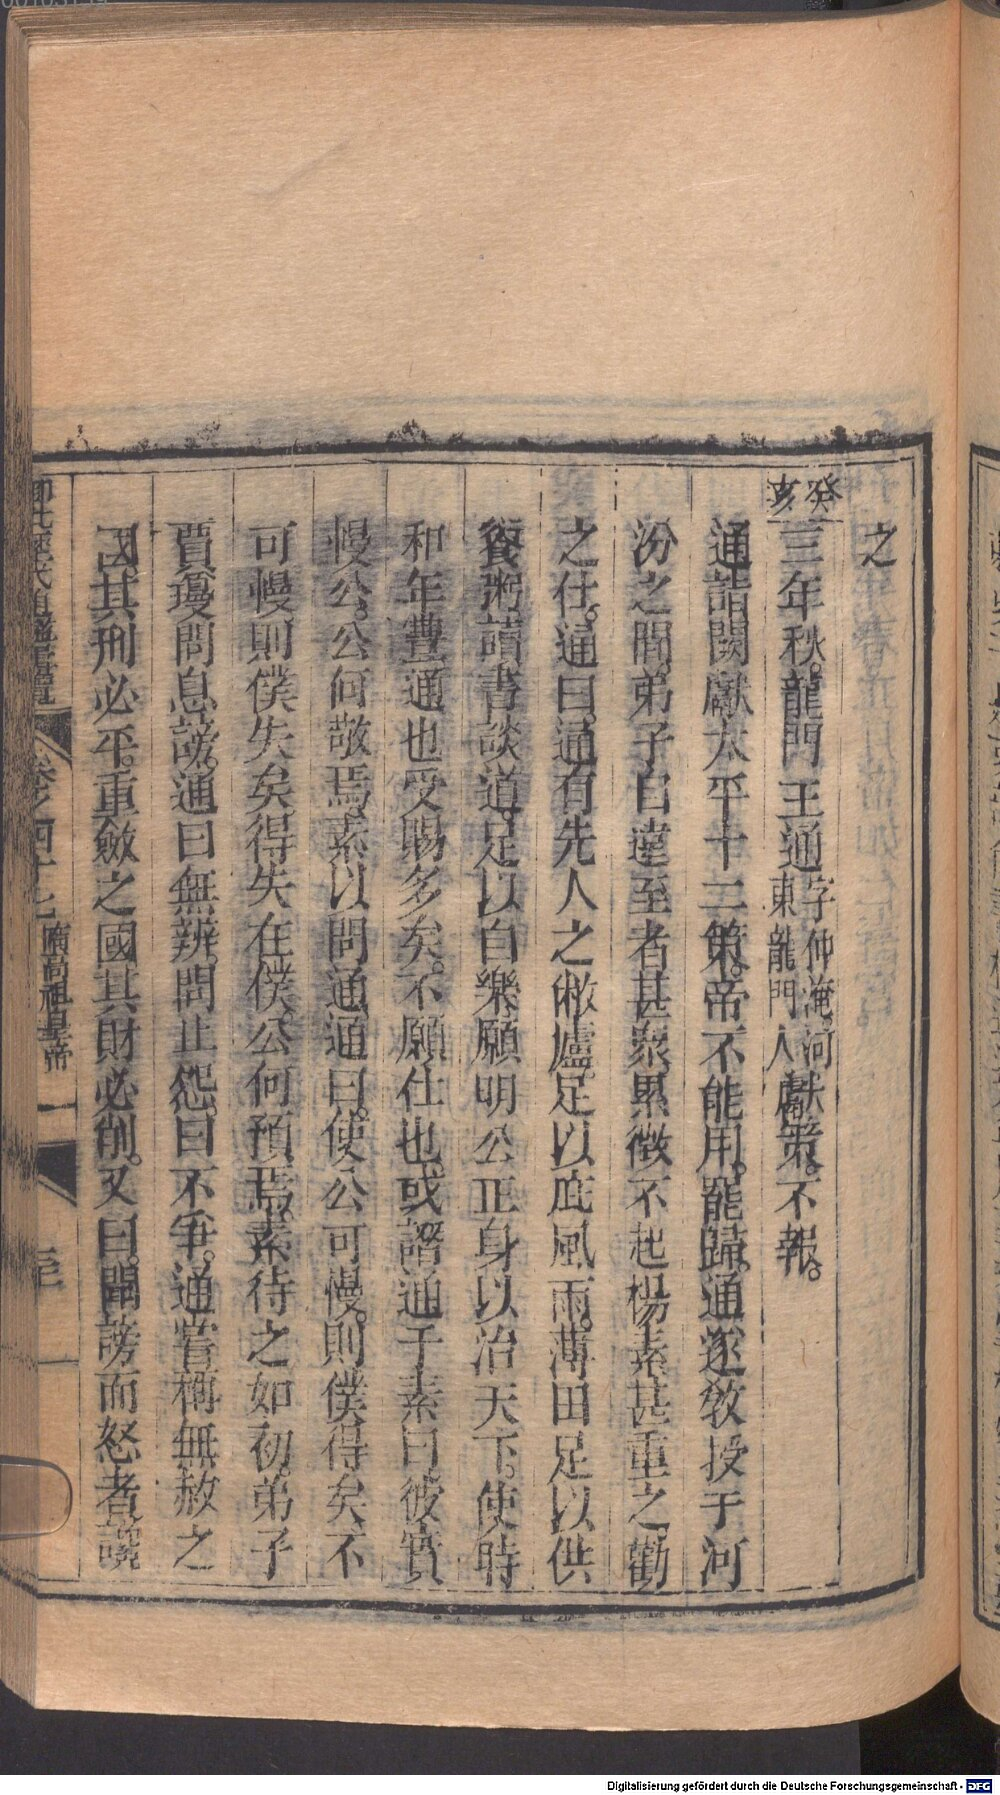 之
癸亥三年秋。龍門王通字仲淹河東龍門人獻策。不報。
通詣闕獻太平十二策。帝不能用。罷歸。通遂敎授于河
汾之間。弟子自遠至者甚衆。累徵不起。楊素甚重之。勸
之仕。通曰。通有先人之敝廬。足以庇風雨。薄田足以供
餐粥。讀書談道。足以自樂。願明公正身以治天下。使時
和年豐。通也受賜多矣。不願仕也。或譖通于素曰。彼實
慢公。公何敬焉。素以問通。通曰。使公可慢。則僕得矣。不
可慢則僕失矣。得失在僕。公何預焉。素待之如初。弟子
賈瓊問息謗。通曰無辨。問止怨。曰不爭。通嘗稱無赦之
國其刑必平。重斂之國其財必削。又曰。聞謗而怒者。讒
卷之四十七 隋高祖皇帝
Digitalisierung gefördert durch die Deutsche Forschungsgemeinschaft - DFG